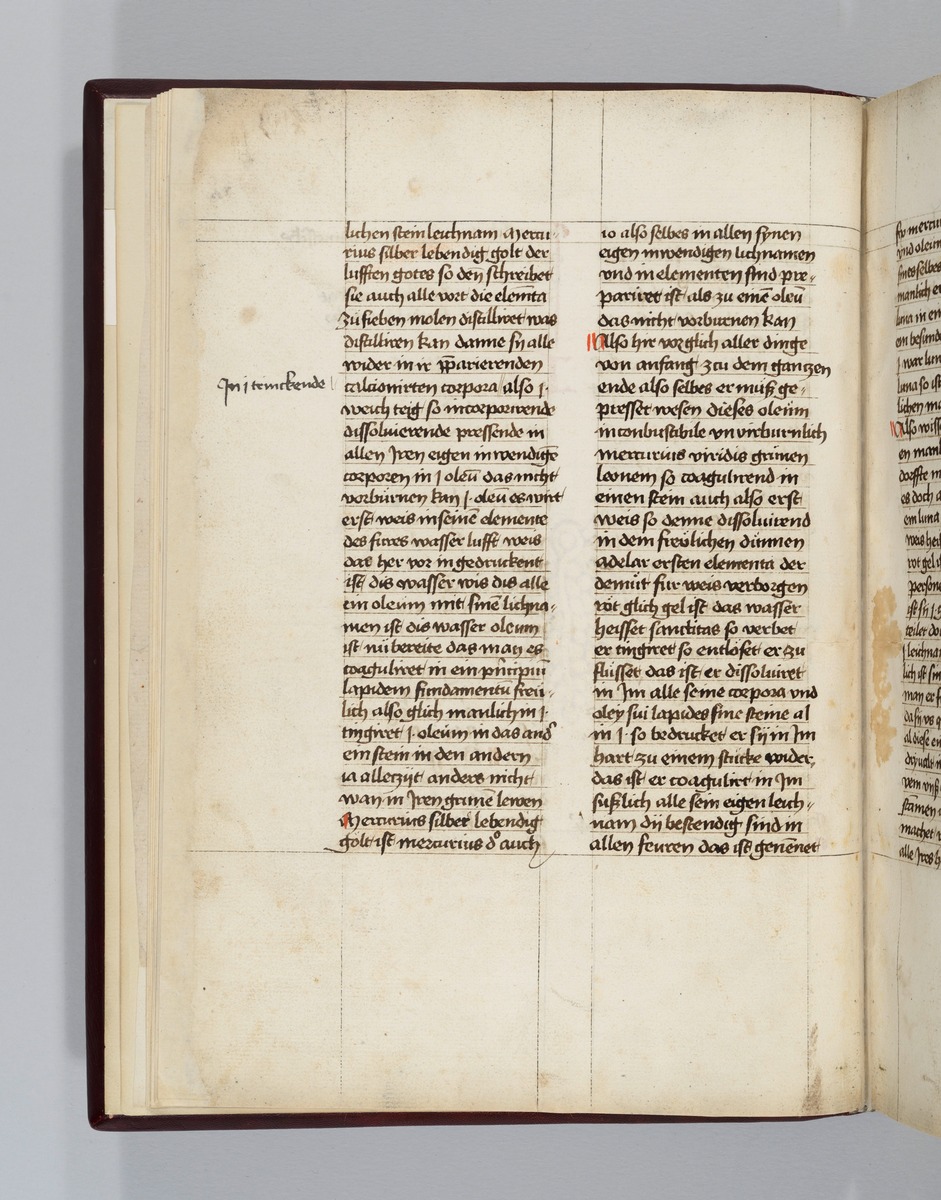 lichen stein leichnam Mercu-
rius silber lebendig golt der
lufften gotes so den schreibet
sie auch alle vort die elemta
zu sieben molen distilliret was
distilliren kan danne sij alle
wider in ir pparierenden
In i trinckende
calcionirten corpora also i·
weich teig so incorporirende
dissoluierende pressende in
allen Iren eigen inwendigē
corporen in i oleū das nicht
vorburnen kan i· oleū es wirt
erst weis in seinē elemente
des fures wasser lufft weis
das her vor in gedruckent
ist dis wasser wis dis alle
ein oleum mit sinē lichna-
men ist dis wasser oleum
ist nū bereite das man es
coaguliret in ein pricipiū
lapidem fundamentū freu-
lich also glich manlich in i·
tingiret i· oleum in das and
ein stein in den andern
ia alleczijt anders nicht
wan in Iren grunē lewen
Mercurius silber lebendig
golt ist mercurius d° auch
io also selbes in allen synen
eigen inwendigen lichnamen
vnd in elementen sind pre-
pariret ist als zu einē oleū
das nicht vorburnen kan
Also hir vor glich aller dinge
von anfang zcu dem gantzen
ende also selbes er muß ge-
presset wesen dieses oleum
inconbustibile vnvirburnlich
mercurius viridis grunen
leonem so coagulirend in
einen stein auch also erst
weis so denne dissoluirend
in dem frolichen dunnen
adelar ersten elementa der
demut fur weis verborgen
rot glich gel ist das wasser
heisset sanctitas so verbet
er tingiret so entloset er zu
flusset das ist er dissoluiret
in Im alle seine corpora vnd
oley sui lapides sine steine al
in i· so bedrucket er sij in Im
hart zu einem stucke wider,
das ist er coagulirt in Im
sußlich alle sein eigen leich-
nam dij bestendig sind in
allen feuren das ist genēnet